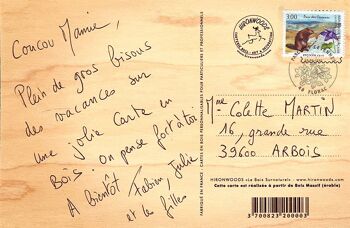 Coucou Mamie,
Plein de gros bisous
des vacances sur
une jolie carte en
Bois. on pense fort à toi
A bientôt Fabien, Julie
et les filles
CARTES EN BOIS PERSONNALISABLES POUR PARTICULIERS ET PROFESSIONNELS
HIRONWOODS
3,00
48 FLORAC
Me Colette MARTIN
16, grande rue
39600 ARBOIS
HIRONWOODS «Le Bois Surnaturel» - www.hironwoods.com
Cette carte est réalisée à partir de Bois Massif (érable)
3 700823 200003